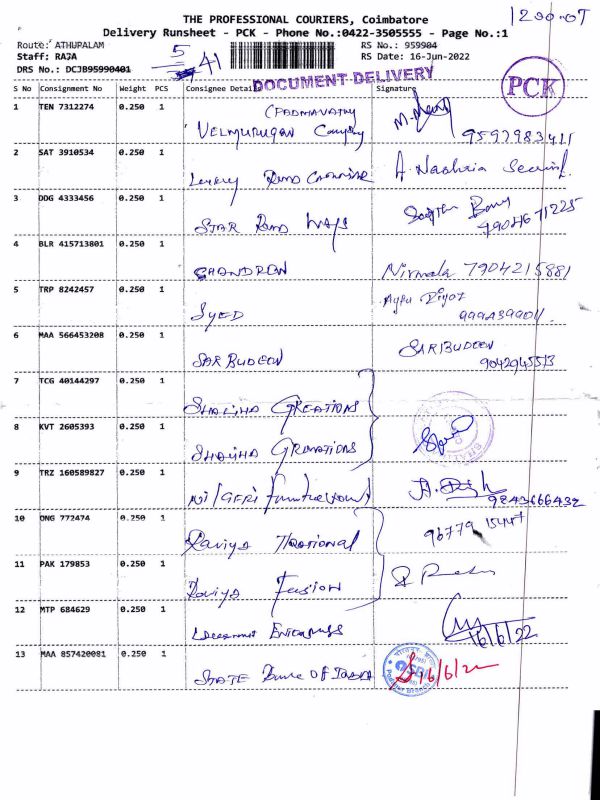 1200.07
THE PROFESSIONAL COURIERS, Coimbatore
Delivery Runsheet - PCK - Phone No.:0422-3505555 - Page No.:1
Route: ATHUPALAM RS No.: 959904
Staff: RAJA 5 41 RS Date: 16-Jun-2022
DRS No.: DCJB95990401
DOCUMENT DELIVERY
PCK
S No Consignment No Weight PCS Consignee Details Signature
1 TEN 7312274 0.250 1 (PADMAVATHY
VELMURUGAN Company 9597983411
2 SAT 3910534 0.250 1
3 DDG 4333456 0.250 1
STAR ROAD WAYS
4 BLR 415713801 0.250 1
CHANDRAN Nirmala 7904215881
5 TRP 8242457 0.250 1
SYED
6 MAA 566453208 0.250 1 SARBUDEEN
SARBUDEEN 9042945513
7 TCG 40144297 0.250 1
SHALIHA CREATIONS
8 KVT 2605393 0.250 1
SHALIHA CREATIONS
9 TRZ 160589827 0.250 1
9843666432
10 ONG 772474 0.250 1 96779 15447
Raviya National
11 PAK 179853 0.250 1
Raviya Fusion
12 MTP 684629 0.250 1
16/6/22
13 MAA 857420081 0.250 1
STATE Bank OF India 16/6/22